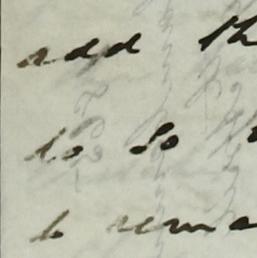 add th
to do
to rema